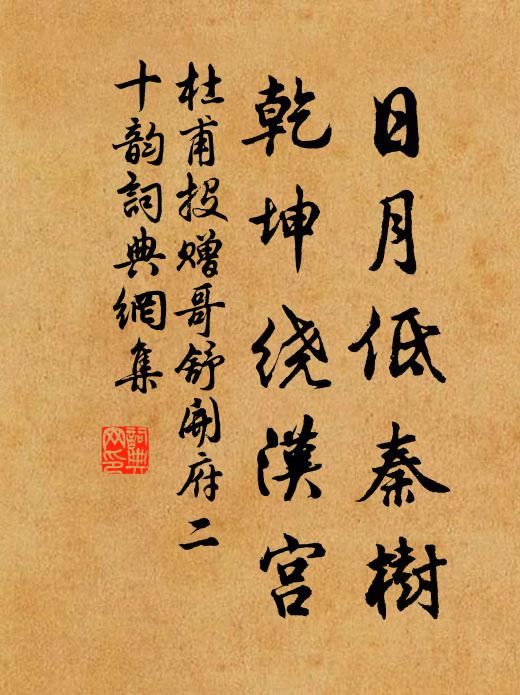 日月低秦樹
乾坤绕漢宫
杜甫投赠哥舒開府二
十韵詞典網集
詞典
网印